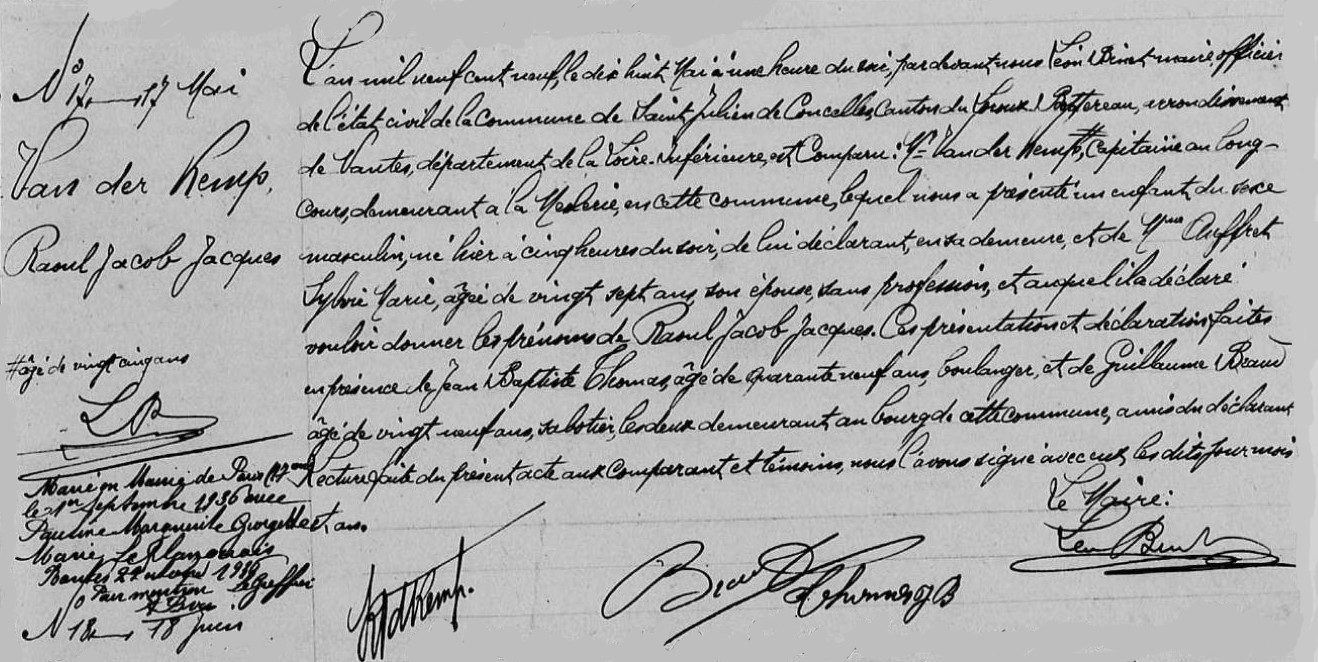 N° 17 — 17 Mai
Van der Kemp,
Raoul Jacob Jacques
# âgé de vingt cinq ans
L B
Marié en Mairie de Paris (17eme)
le 1er Septembre 1936 avec
Pauline Marguerite Georgette
Marie
Nantes 1936
Pour mention Le Greffier
N° 18 — 18 Juin
L'an mil neuf cent neuf, le dix huit Mai à une heure du soir, par devant nous Léon Binet maire, officier
de l'état civil de la Commune de Saint Julien de Concelles, Canton du Loroux-Bottereau, arrondissement
de Nantes, département de la Loire-Inférieure, est Comparu : Mr Van der Kemp #, Capitaine au long-
cours, demeurant à la Meslerie, en cette commune, lequel nous a présenté un enfant du sexe
masculin, né hier à cinq heures du soir, de lui déclarant, en sa demeure, et de Mme Auffret
Sylvie Marie, âgée de vingt sept ans, son épouse, sans profession, et auquel il a déclaré
vouloir donner les prénoms de Raoul Jacob Jacques. Ces présentation et déclaration faites
en présence de Jean Baptiste Thomas, âgé de quarante neuf ans, boulanger, et de Guillaume Braud
âgé de vingt neuf ans, sabotier, les deux demeurant au bourg de cette commune, amis du déclarant
Lecture faite du présent acte aux comparant et témoins, nous l'avons signé avec eux, les dits jour mois
et an.
Le Maire :
Kemp. Braud Thomas JB Léon Binet